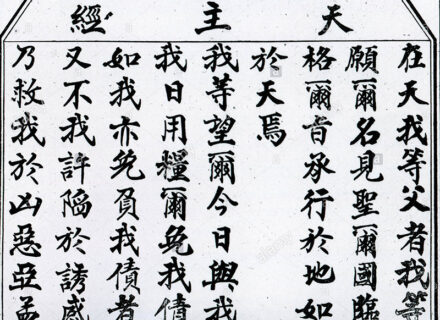 天主經
在天我等父者我等
願爾名見聖爾國臨
格爾旨承行於地如
於天焉
我等望爾今日與我
我日用糧爾免我債
如我亦免負我債者
又不我許陷於誘感
乃救我於凶惡亞孟